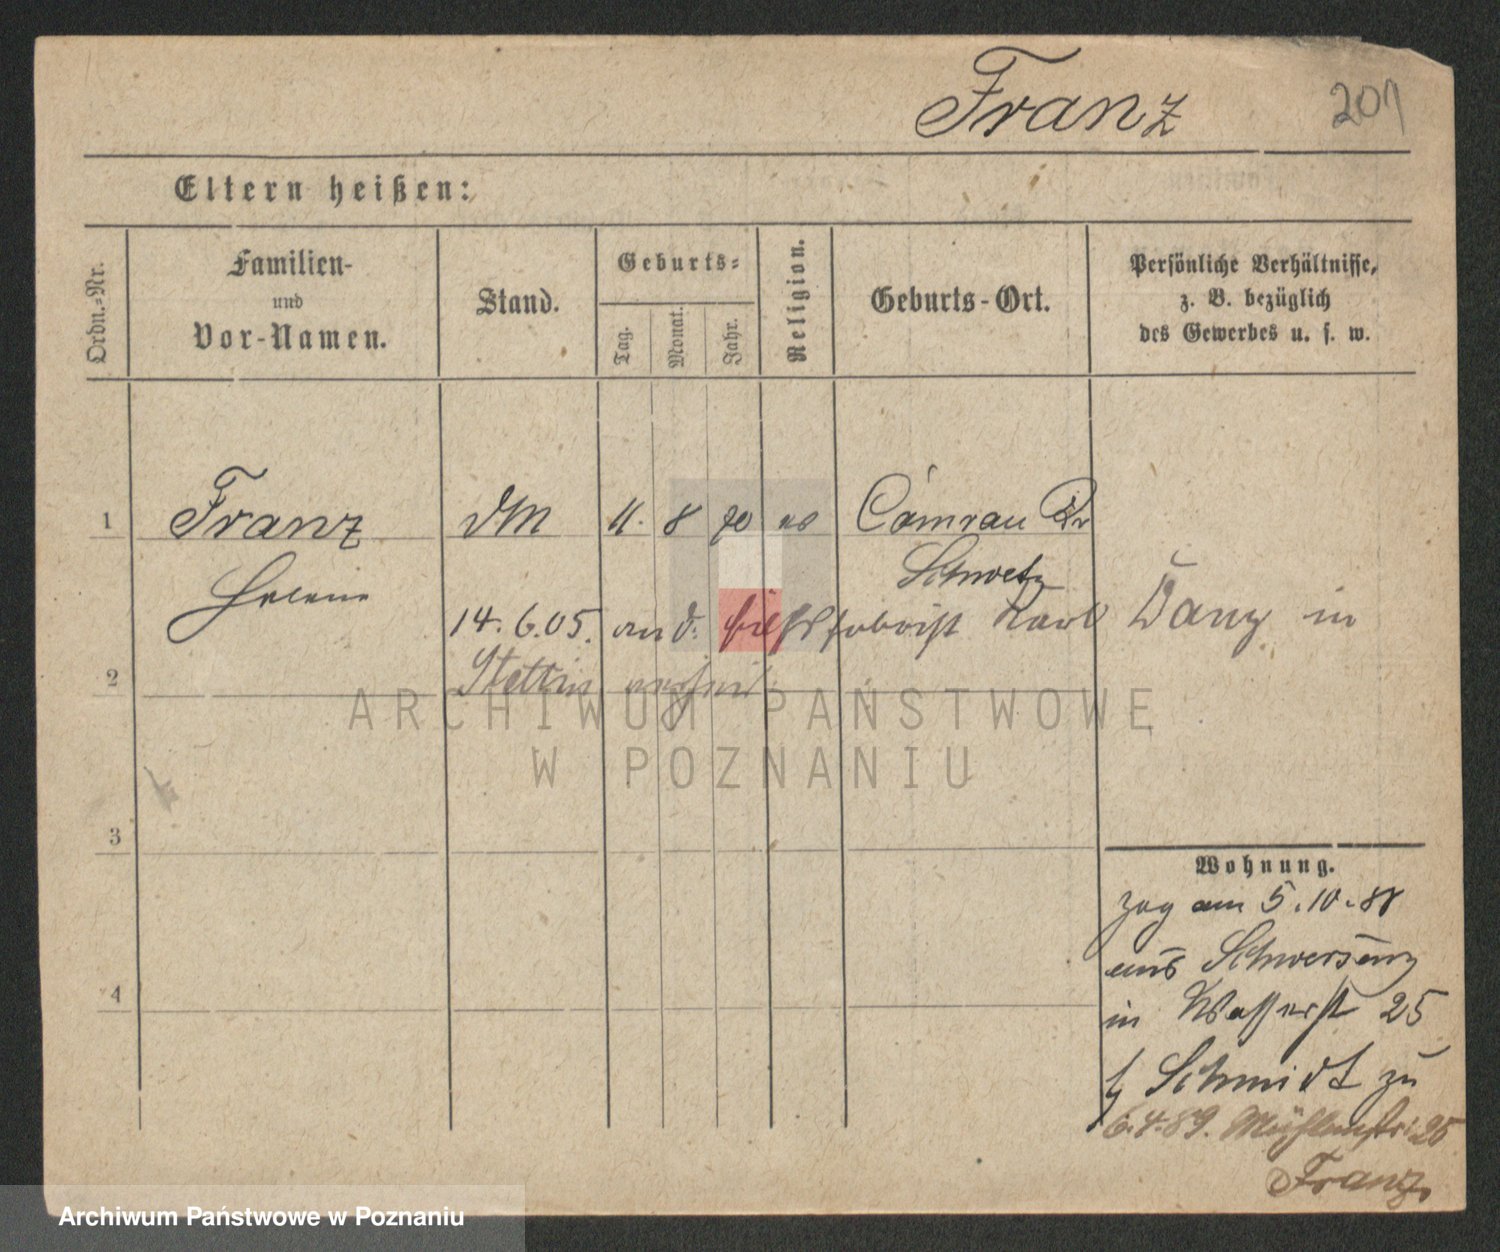 Franz 201
Eltern heißen:
Ordn.-Nr.
Familien-
und
Vor-Namen.
Stand.
Geburts-
Tag.
Monat.
Jahr.
Religion.
Geburts-Ort.
Persönliche Verhältnisse,
z. B. bezüglich
des Gewerbes u. s. w.
1 Franz DM 11. 8 70 Comrau Kr
Helene Schwetz
14. 6. 05. an d. fabrikt Karl Danz in
2 Stettin verheir.
ARCHIWUM PAŃSTWOWE
W POZNANIU
3
Wohnung.
zog am 5. 10. 88
aus Schwersenz
in Wasserst 25
4
b Schmidt zu
6. 4. 89. Mühlenstr: 25
Franz
Archiwum Państwowe w Poznaniu